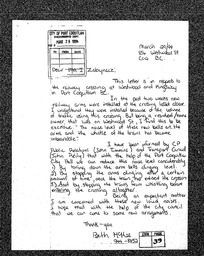 CITY OF PORT COQUITLAM
March 29/94
Westwood St
Coq. B.C.
Dear
This letter is in respect to
the railway crossing at Westwood and Kingsway
in Port Coquitlam BC.
In the past two weeks new
railway arms were installed at the crossing listed above.
I understand they were installed because of the volume
of traffic using this crossing. But being a resident/home
owner that lives on Westwood St, I find this to be
excessive. The noise level of these new bells on the
arms and the whistles of the trains has become
unbearable.
I have been informed by C.P
Public Relations (John) and Transport Canada
(John) that with the help of the Port Coquitlam
City Hall we can reduce noise level considerably.
1) By turning down the arm bells dinging level.
2) By stopping the arms dinging after a certain
amount of time, once the train has entered the crossing.
3) And by stopping the trains from whistling before
entering the crossing altogether.
Being an important matter
I am concerned with these new found noises.
I hope that with the help of the city council
that we can come to some new arrangements.
Thank-you
Beth
39